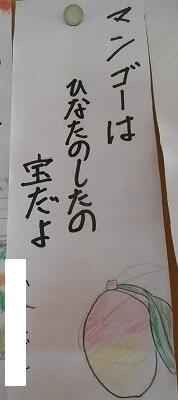 マンゴーは
ひなたのしたの
宝だよ